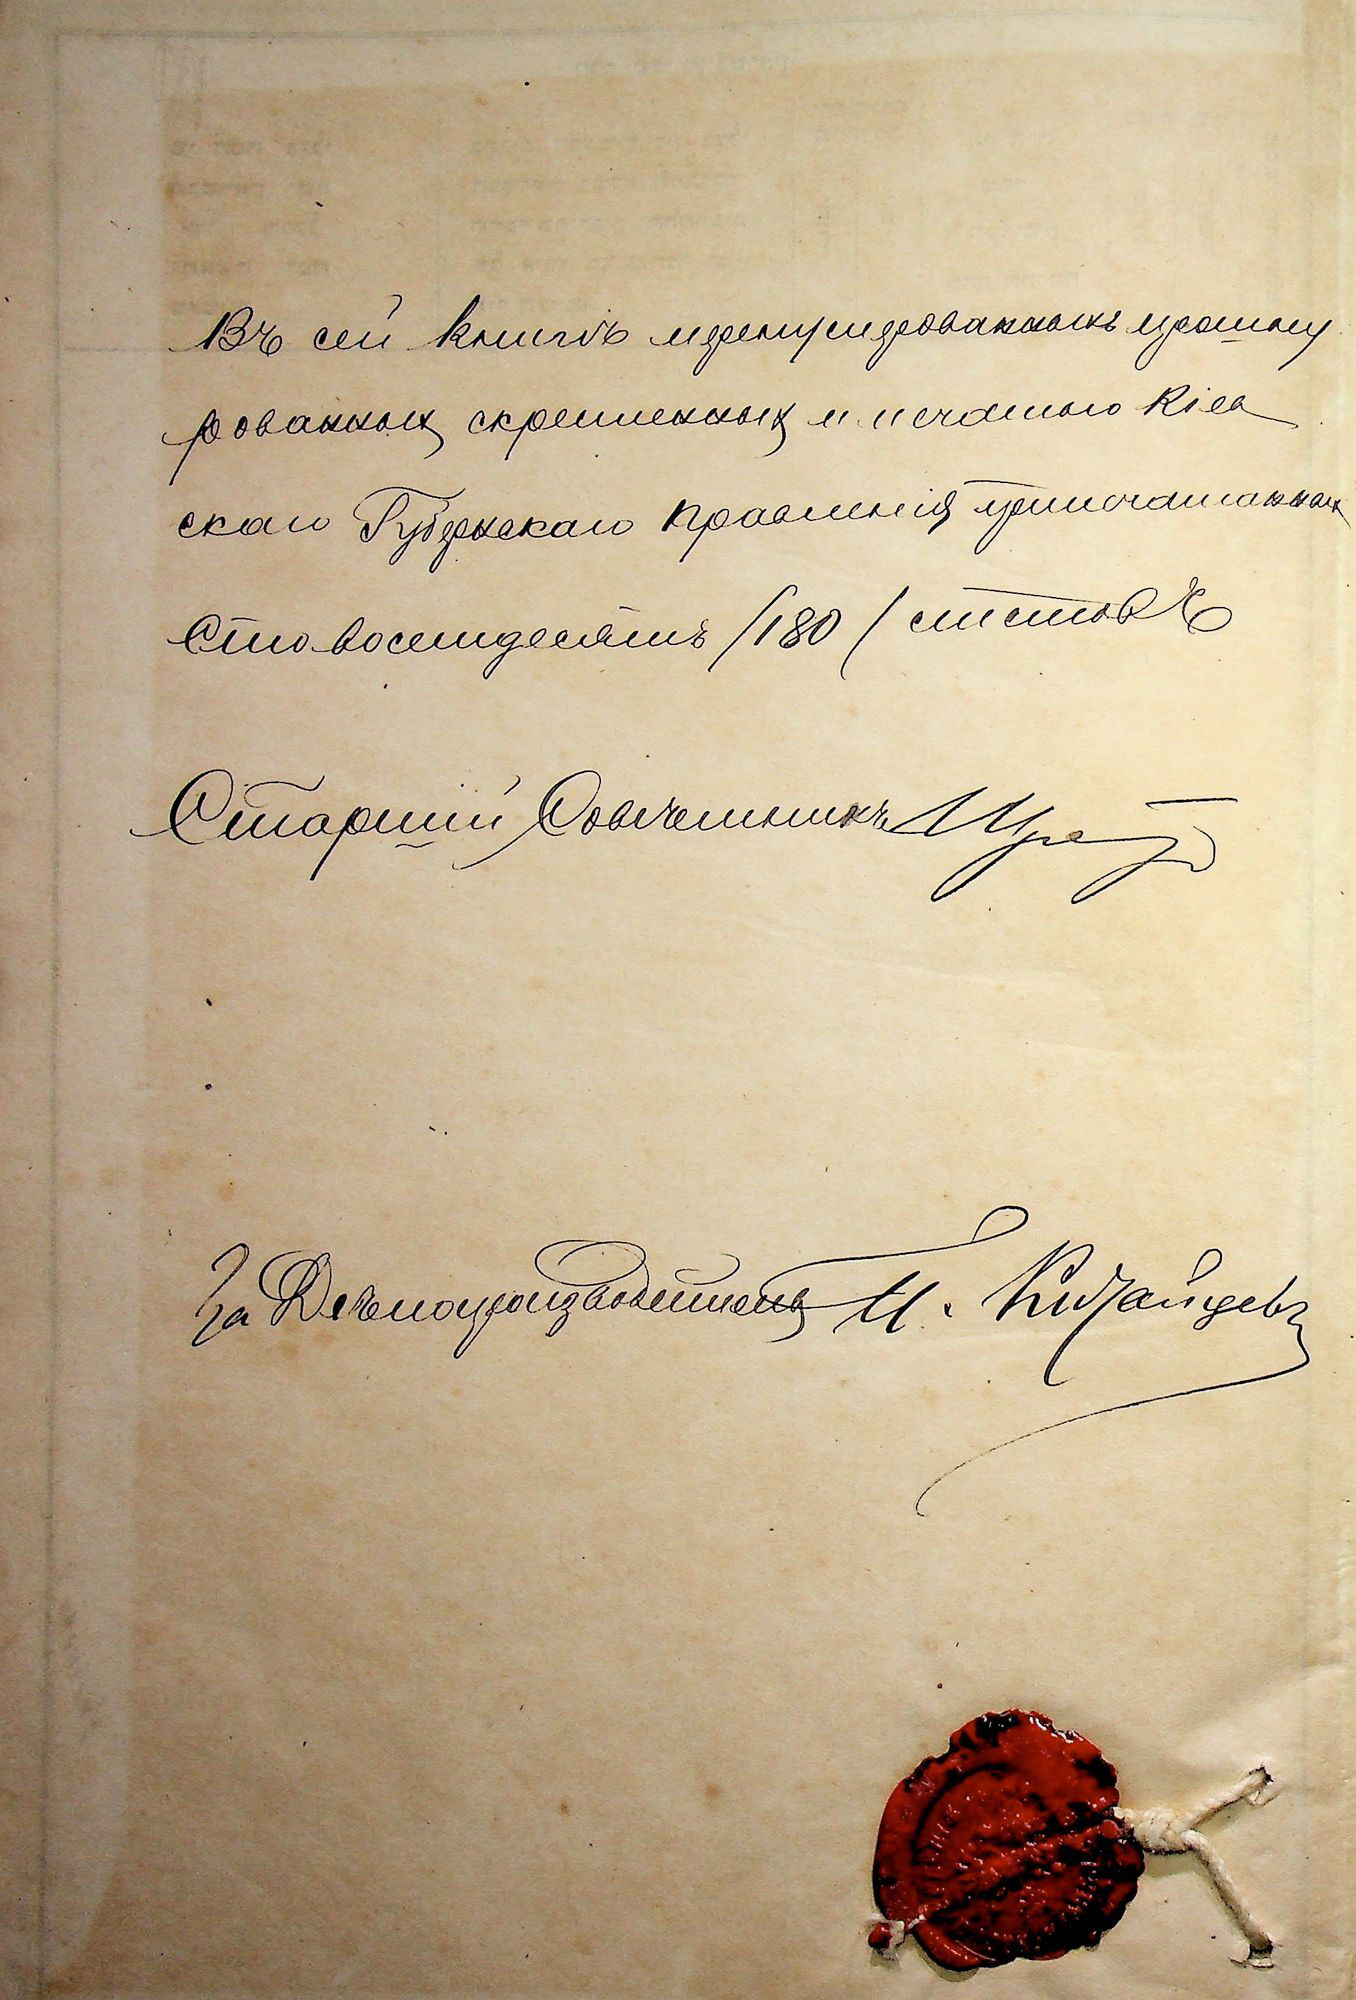 Въ сей книгѣ пронумерованныхъ прошну
рованныхъ скрепленныхъ и печатью Кіев
скаго Губернскаго Правленія припечатанныхъ
Сто восемдесятъ /180/ листовъ
Старшій Совѣтникъ
За Дѣлопроизводителя И. Китайцевъ